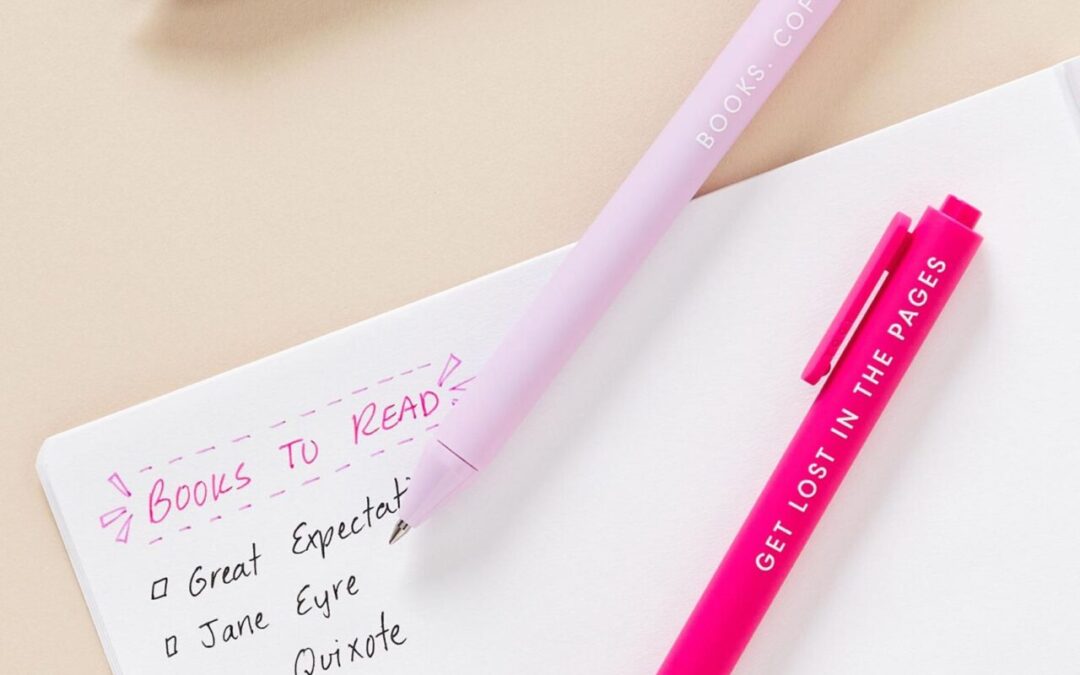 BOOKS TO READ
Great
Jane Eyre
Quixote
BOOKS.
GET LOST IN THE PAGES